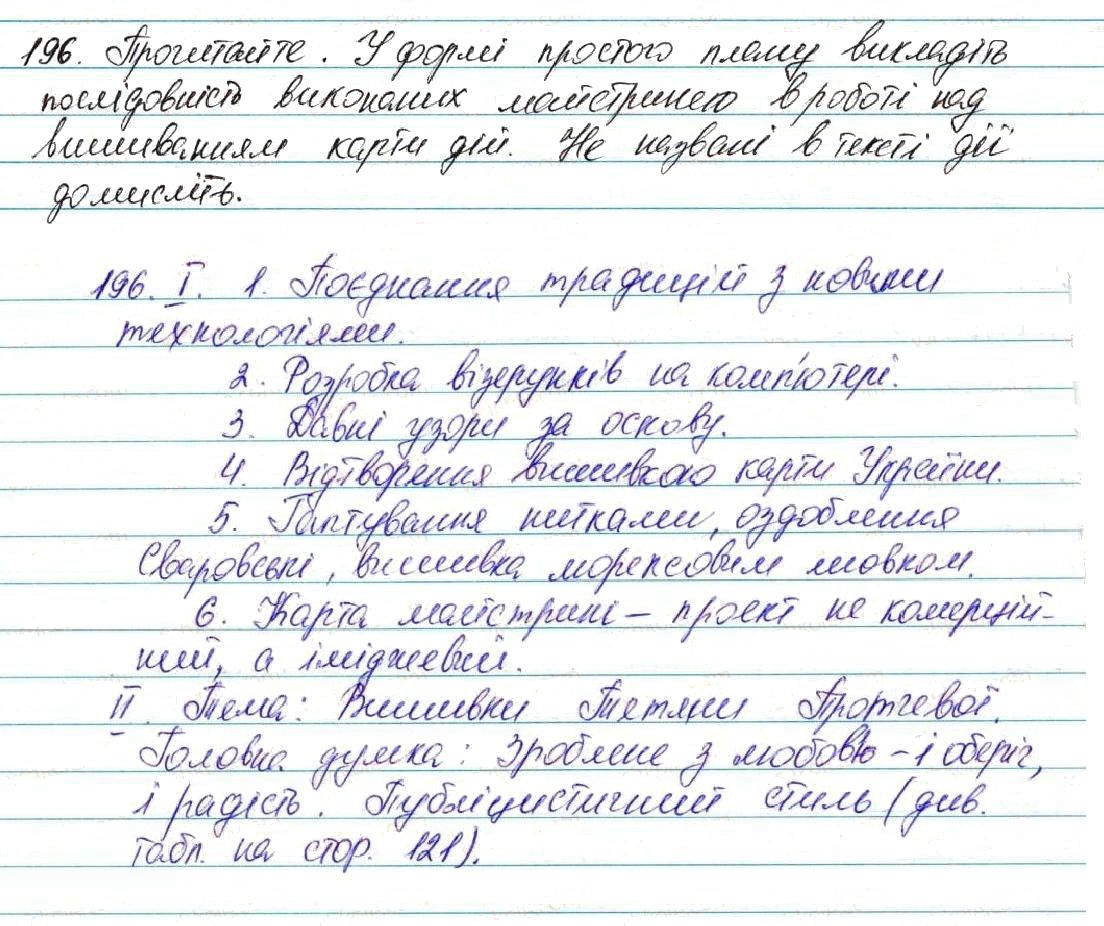 196. Прочитайте. У формі простого плану викладіть
послідовність виконаних майстринею в роботі над
вишиванням карти дій. Не названі в тексті дії
домисліть.
196. I. 1. Поєднання традицій з новими
технологіями.
2. Розробка візерунків на комп'ютері.
3. Давні узори за основу.
4. Відтворення вишивкою карти України.
5. Гаптування нитками, оздоблення
Сваровські, вишивка морексовим шовком.
6. Карта майстрині – проект не комерцій-
ний, а іміджевий.
II. Тема: Вишивки Тетяни Протчевої.
Головна думка: Зроблене з любов'ю – і оберіг,
і радість. Публіцистичний стиль (див.
табл. на стор. 121).